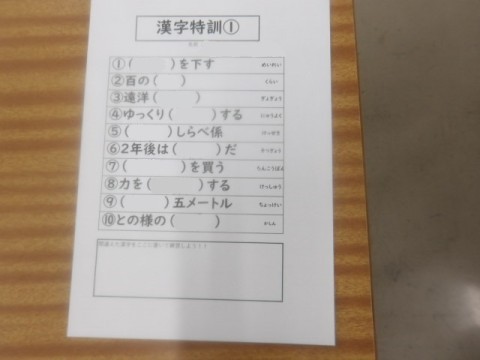 漢字特訓①
①(　　)を下す　めいれい
②百の(　　)　くらい
③遠洋(　　)　ぎょぎょう
④ゆっくり(　　)する　にゅうよく
⑤(　　)しらべ係　けっせき
⑥2年後は(　　)だ　そつぎょう
⑦(　　)を買う　たんこうぼん
⑧力を(　　)する　けっしゅう
⑨(　　)五メートル　ちょっけい
⑩との様の(　　)　かしん